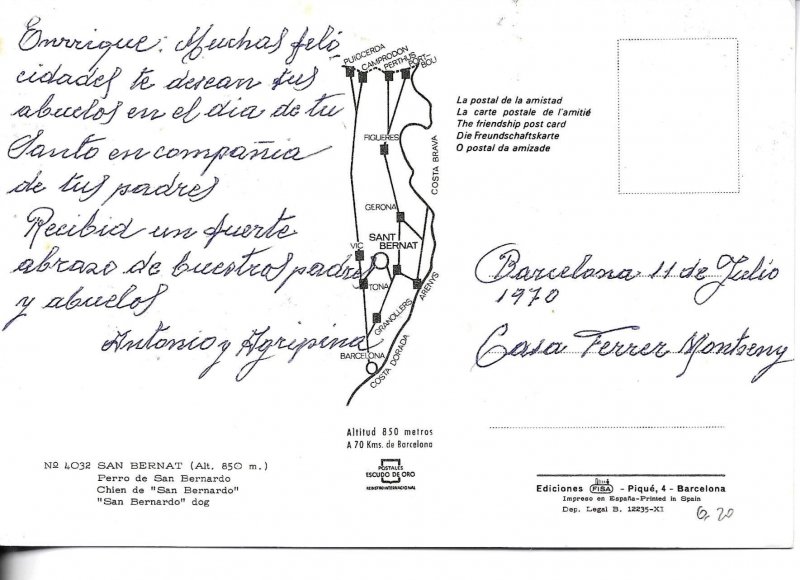 Enrrique: Muchas feli
cidades te desean tus
abuelos en el dia de tu
Santo en compañia
de tus padres
Recibid un fuerte
abrazo de buestros padres
y abuelos
Antonio y Agripina
PUIGCERDA
CAMPRODON
PERTHUS
PORT-BOU
FIGUERES
COSTA BRAVA
GERONA
SANT
BERNAT
VIC
TONA
ARENYS
GRANOLLERS
BARCELONA
COSTA DORADA
Altitud 850 metros
A 70 Kms. de Barcelona
POSTALES
ESCUDO DE ORO
REGISTRO INTERNACIONAL
Nº 4032 SAN BERNAT (Alt. 850 m.)
Perro de San Bernardo
Chien de "San Bernardo"
"San Bernardo" dog
La postal de la amistad
La carte postale de l'amitié
The friendship post card
Die Freundschaftskarte
O postal da amizade
Barcelona 11 de Julio
1970
Casa Ferrer Montseny
Ediciones FISA - Piqué, 4 - Barcelona
Impreso en España-Printed in Spain
Dep. Legal B. 12235-XI